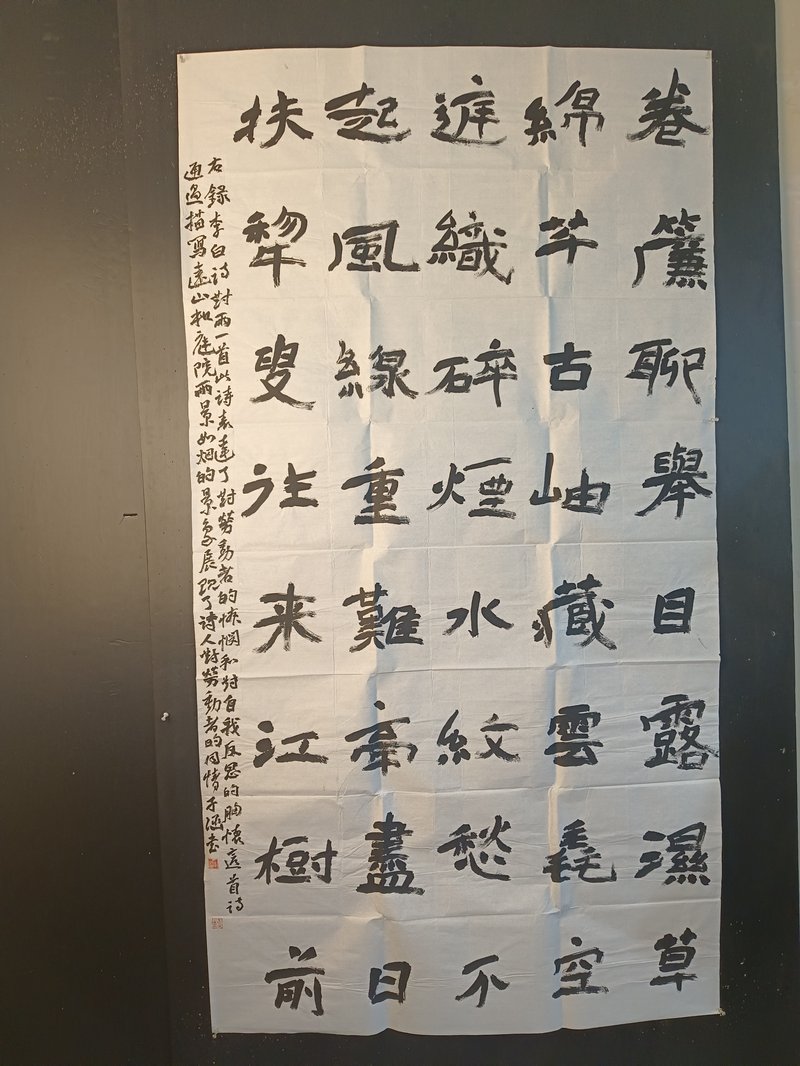 卷簾聊舉目露濕草
綿芊古岫藏雲毳空
庭織碎煙水紋愁不
起風線重難牽盡日
扶犂叟往来江樹前
右錄李白诗對雨一首此诗表達了對勞動者的憐憫和對自我反思的胸懷這首诗
通過描寫遠山和庭院雨景如烟的景象展現了诗人對勞動者的同情子涵书